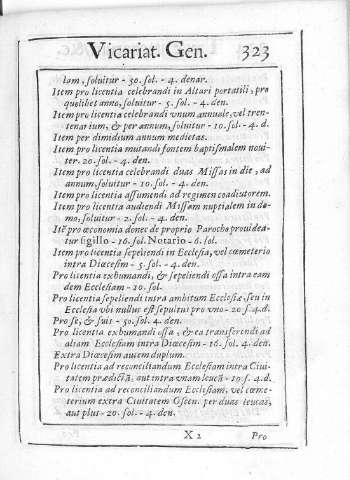 Vicariat. Gen. 323
lam, soluitur - 30. sol. - 4. denar.
Item pro licentia celebrandi in Altari portatili, pro
quolibet anno, soluitur - 5. sol. - 4. den.
Item pro licentia celebrandi vnum annuale, vel tren-
tenarium, & per annum, soluitur - 10. sol. - 4. d.
Item per dimidium annum medietas.
Item pro licentia mutandi fontem baptismalem noui-
ter. 20. sol. - 4. den.
Item pro licentia celebrandi duas Missas in die, ad
annum, soluitur - 10. sol. - 4. den.
Item pro licentia assumendi ad regimen coadiutorem.
Item pro licentia audiendi Missam nuptialem in do-
mo, soluitur - 2. sol. - 4. den.
Itē pro œconomia donec de proprio Parocho prouidea-
tur sigillo - 16. sol. Notario - 6. sol.
Item pro licentia sepeliendi in Ecclesia, vel cœmeterio
intra Diœcesim - 5. sol. - 4. den.
Pro licentia exhumandi, & sepeliendi ossa intra eam
dem Ecclesiam - 10. sol.
Pro licentia sepeliendi intra ambitum Ecclesiæ, seu in
Ecclesia vbi nullus est sepultus pro vno - 20 s. 4. d.
Pro se, & suis - 50. sol. 4. den.
Pro licentia exhumandi ossa, & ea transferendi ad
aliam Ecclesiam intra Diœcesim - 16. sol. 4. den.
Extra Diœcesim autem duplum.
Pro licentia ad reconciliandum Ecclesiam intra Ciui-
tatem prædictā, aut intra vnam leucā - 19. s. 4. d.
Pro licentia ad reconciliandum Ecclesiam, vel cœme-
terium extra Ciuitatem Oscen. per duas leucas,
aut plus - 20. sol. - 4. den.
X 2 Pro